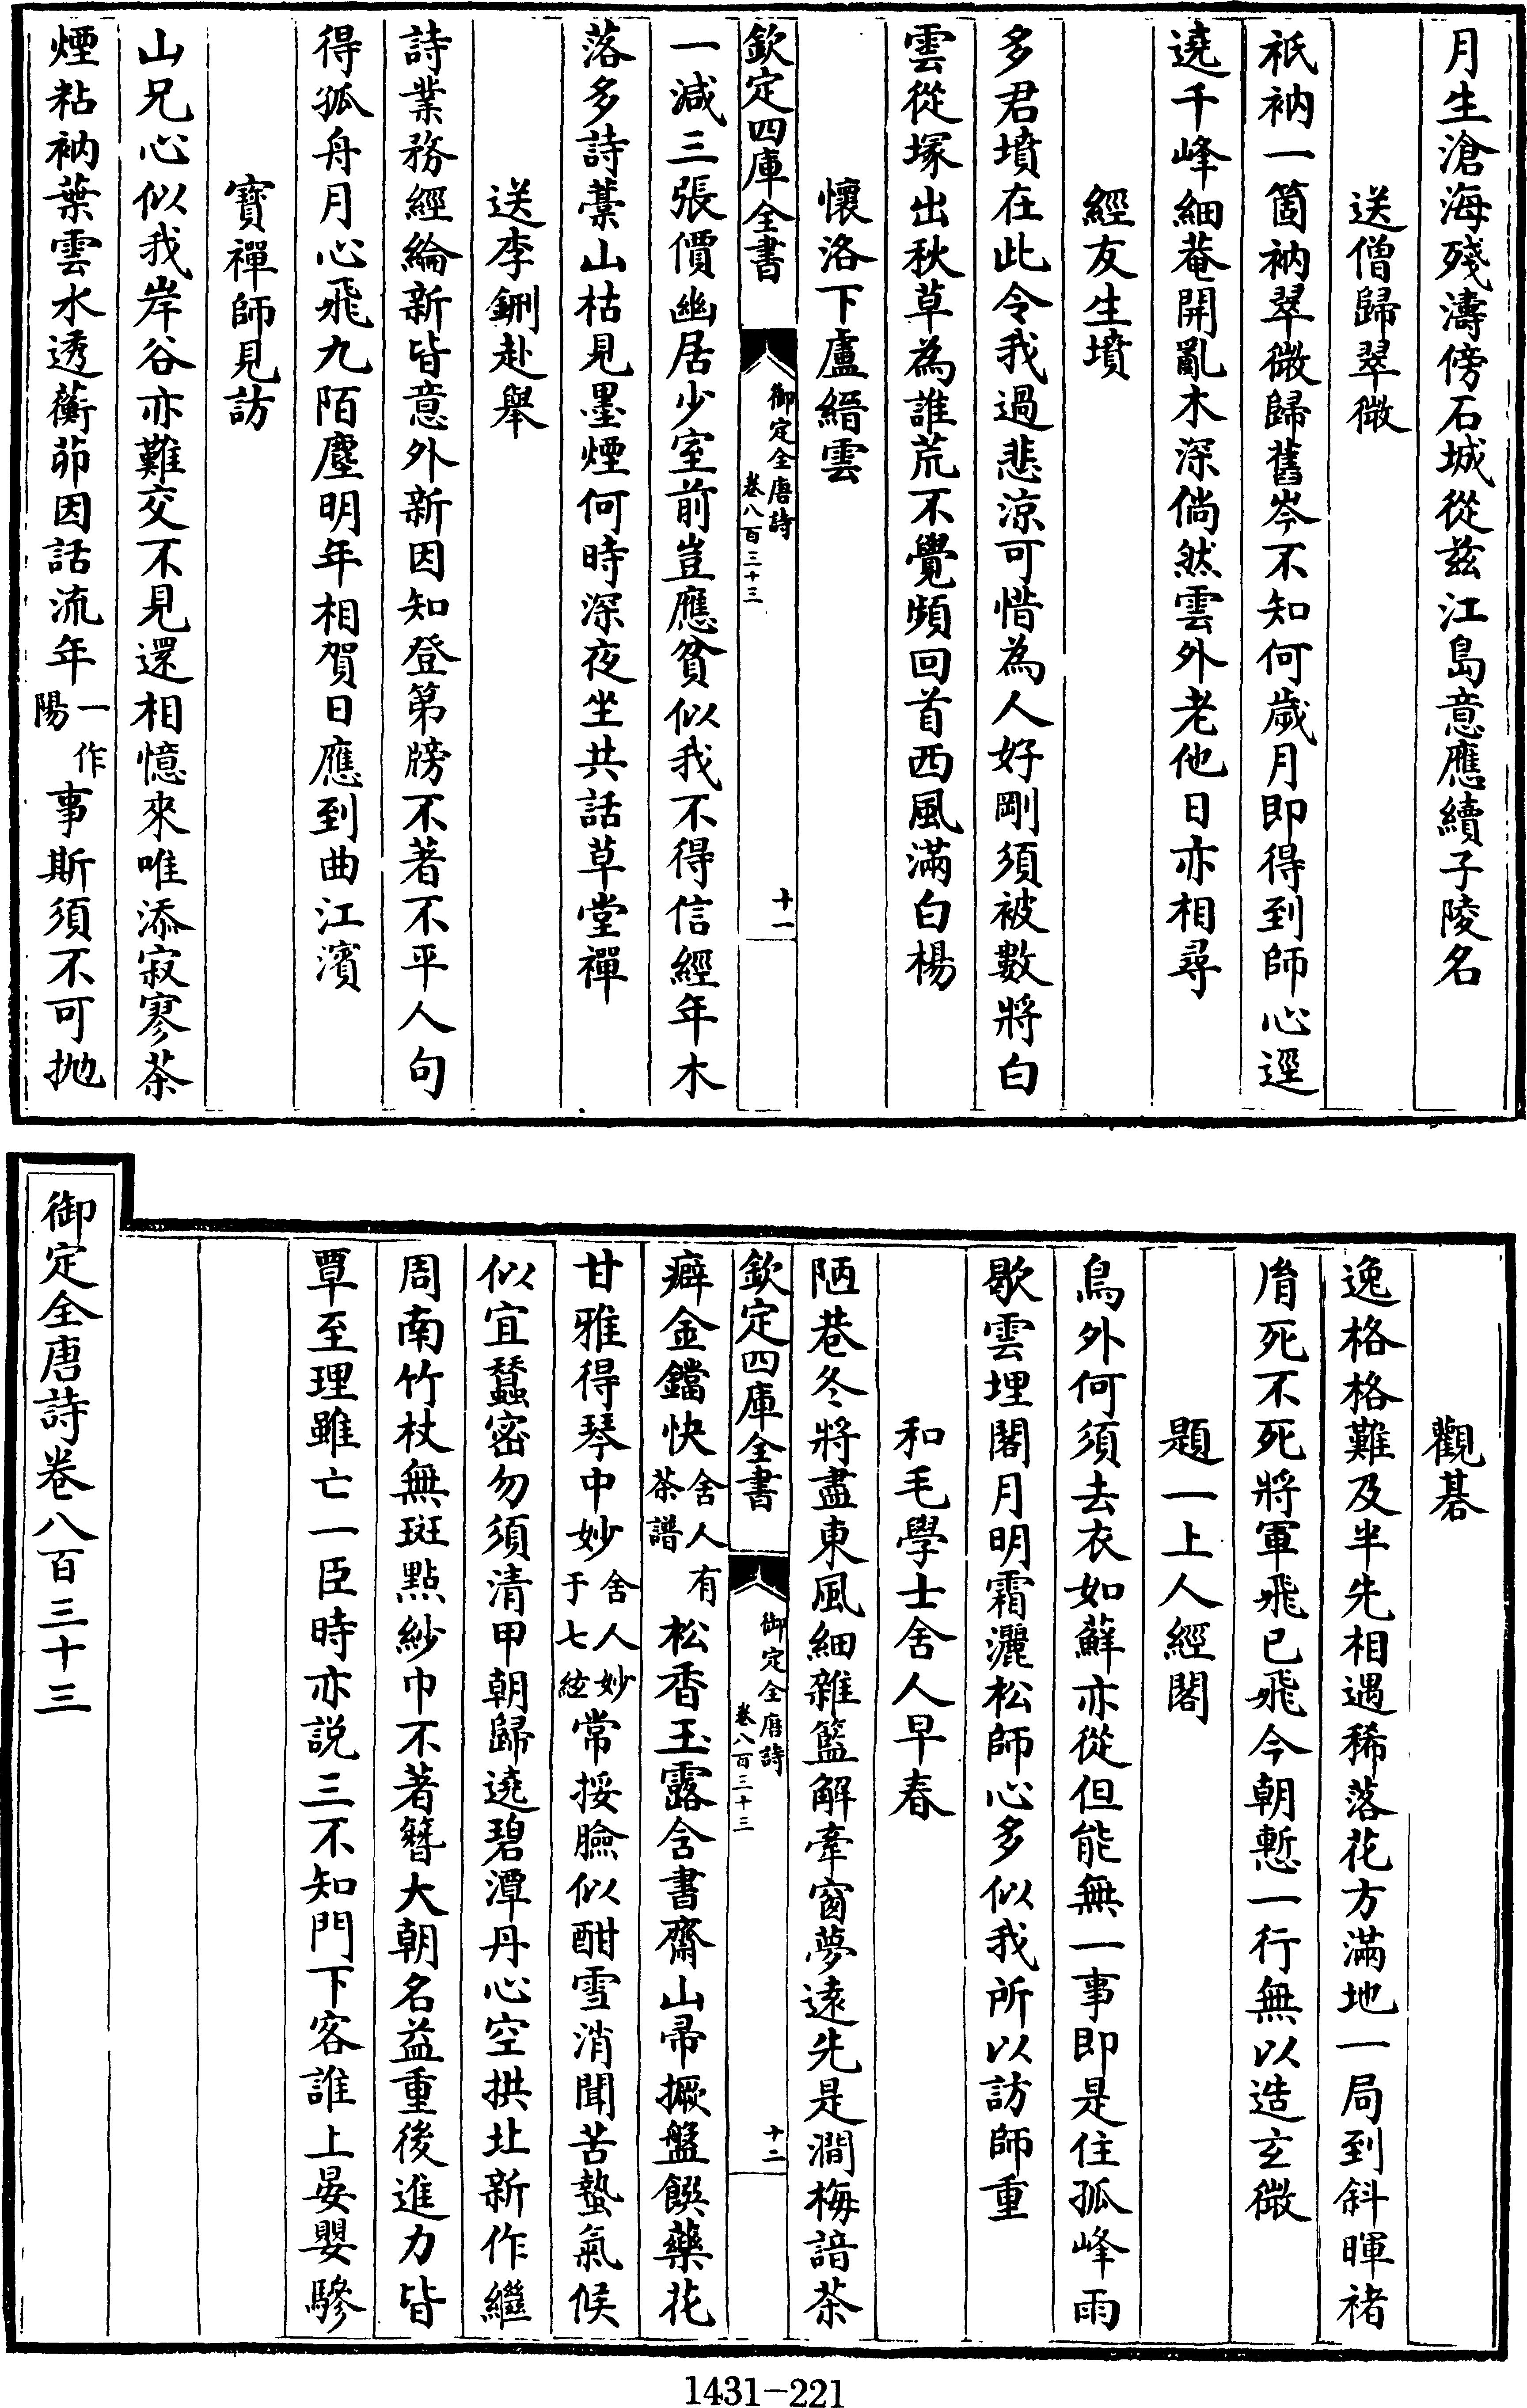 月生滄海殘濤傍石城從兹江島意應續子陵名
送僧歸翠微
祇衲一箇衲翠微歸舊岑不知何歲月即得到師心逕
遶千峰細菴開亂木深倘然雲外老他日亦相尋
經友生墳
多君墳在此令我過悲涼可惜為人好剛須被數將白
雲從塚出秋草為誰荒不覺頻回首西風滿白楊
懷洛下盧縉雲
欽定四庫全書
御定全唐詩
卷八百三十三
十一
一減三張價幽居少室前豈應貧似我不得信經年木
落多詩藁山枯見墨煙何時深夜坐共話草堂禪
送李鉶赴舉
詩業務經綸新皆意外新因知登第牓不著不平人句
得孤舟月心飛九陌塵明年相賀日應到曲江濱
寶禪師見訪
山兄心似我岸谷亦難交不見還相憶來唯添寂寥茶
煙粘衲葉雲水透蘅茆因話流年一作陽事斯須不可抛
觀棊
逸格格難及半先相遇稀落花方滿地一局到斜暉褚
胤死不死將軍飛已飛今朝慙一行無以造玄微
題一上人經閣
鳥外何須去衣如蘚亦從但能無一事即是住孤峰雨
歇雲埋閣月明霜灑松師心多似我所以訪師重
和毛學士舍人早春
陋巷冬將盡東風細雜籃解牽窗夢遠先是澗梅諳茶
欽定四庫全書
御定全唐詩
卷八百三十三
十二
癖金鐺快舍人有茶譜松香玉露含書齋山帚撅盤饌藥花
甘雅得琴中妙舍人妙于七絃常挼臉似酣雪消聞苦蟄氣候
似宜蠶密勿須清甲朝歸遶碧潭丹心空拱北新作繼
周南竹杖無斑點紗巾不著簪大朝名益重後進力皆
覃至理雖亡一臣時亦説三不知門下客誰上晏嬰驂
御定全唐詩卷八百三十三
1431-221